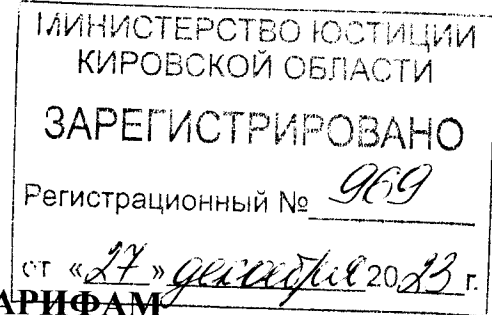 МИНИСТЕРСТВО ЮСТИЦИИ
КИРОВСКОЙ ОБЛАСТИ
ЗАРЕГИСТРИРОВАНО
Регистрационный № 969
от «27» декабря 2023 г.
АРИФАМ